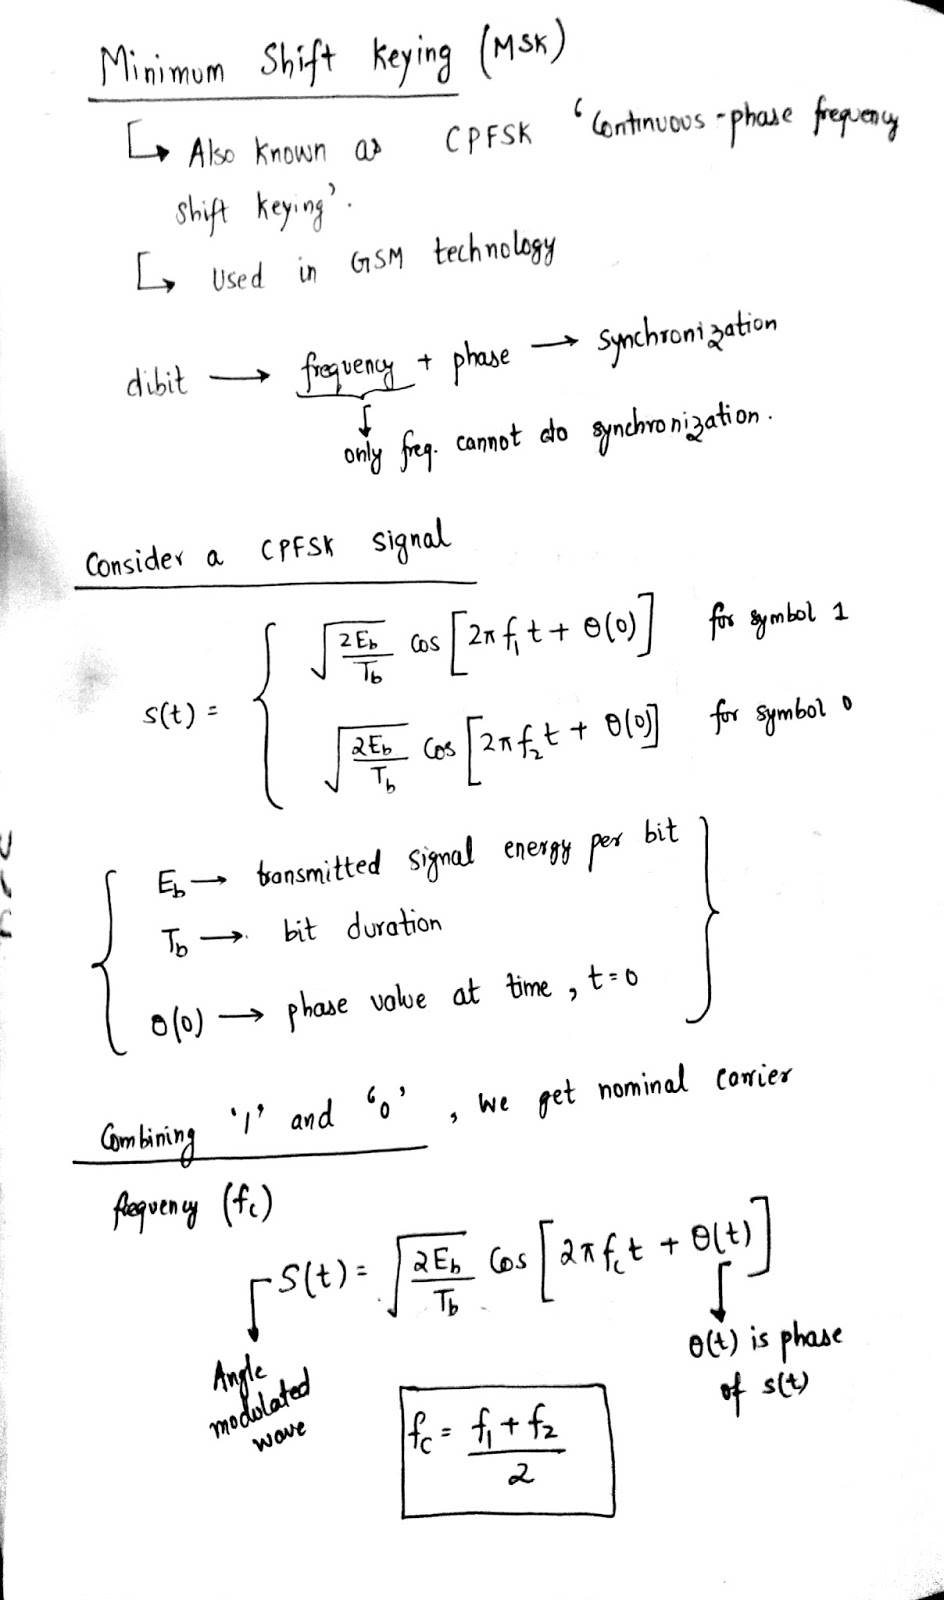 Minimum Shift Keying (MSK)
↳ Also known as CPFSK 'Continuous-phase frequency
shift keying'.
↳ Used in GSM technology
dibit → frequency + phase → synchronization
↓
only freq. cannot do synchronization.
Consider a CPFSK signal
s(t) = { √(2E_b/T_b) cos [2π f₁ t + θ(0)] for symbol 1
√(2E_b/T_b) cos [2π f₂ t + θ(0)] for symbol 0
{ E_b → transmitted signal energy per bit }
T_b → bit duration
θ(0) → phase value at time, t=0
Combining '1' and '0', we get nominal carrier
frequency (f_c)
S(t) = √(2E_b/T_b) cos [2π f_c t + θ(t)]
Angle
modulated
wave
θ(t) is phase
of s(t)
f_c = (f₁ + f₂)/2